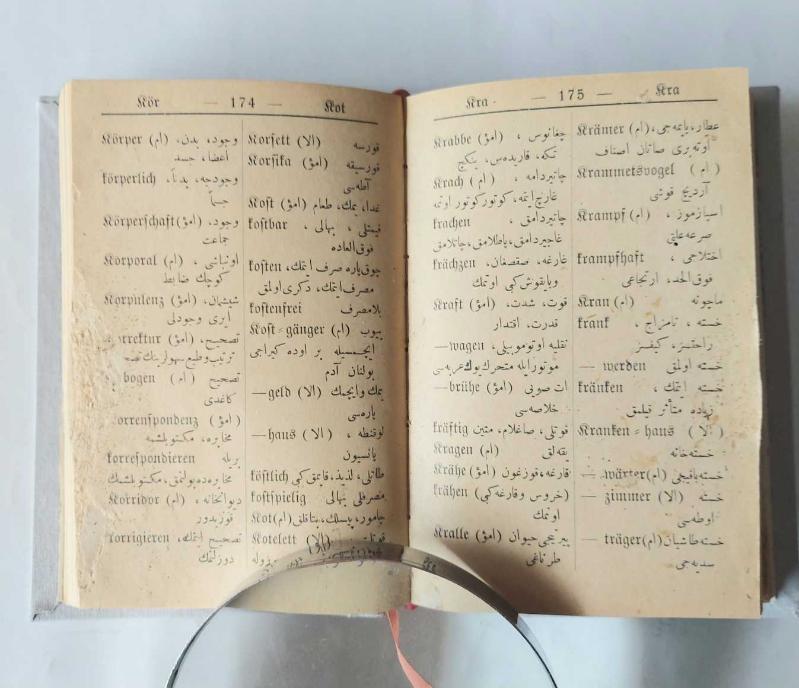 Kör — 174 — Kot
Körper (ام) وجود، بدن،
أعضا، جسد
körperlich وجودجه، بدناً،
جسما
Körperschaft (امؤ) وجود،
جماعت
Korporal (ام) اونباشی،
كوچك ضابط
Korpulenz (امؤ) شیشمان،
آیری وجودلی
تصحیح، (امؤ)
ترتیب وطبع
تصحیح (ام) bogen
كاغدی
(امؤ)
مخابره، مكتوبلشمه
korrespondieren بریله
مخابره ده بولنمق، مكتوبلشمك
Korridor (ام) دیوانخانه،
قوریدور
korrigieren تصحیح ایتمك،
دوزلتمك
Korsett (الا) قورسه
Korsika (امؤ) قورسیقه
آطه سی
Kost (امؤ) غدا، یمك، طعام
kostbar قیمتلی، بهالی،
فوق العاده
kosten چوق پاره صرف ایتمك،
مصرف ایتمك، دكری اولمق
kostenfrei بلامصرف
Kost=gänger (ام) ییوب
ایچمسیله بر اوده كیراجی
بولنان آدم
—geld (الا) یمك وایچمك
پاره سی
—haus (الا) لوقنطه،
پانسیون
köstlich طاتلی، لذیذ،
kostspielig مصرفلی بهالی
Kot (ام) چامور، پیسلك،
Kotelett (الا)
Kra — 175 — Kra
Krabbe (امؤ) چغانوس،
تكه، قاریدس، ینكج
Krach (ام) چاتیردامه،
krachen چاتیردامق،
غاجیردامق، پاطلامق، چاتلامق
krächzen غارغه، صقصغان،
وبایقوش كبی اوتمك
Kraft (امؤ) قوت، شدت،
قدرت، اقتدار
—wagen نقلیه اوتوموبیلی،
موتور ایله متحرك یوك عربه سی
—brühe (امؤ) ات صویی
خلاصه سی
kräftig قوتلی، صاغلام، متین
Kragen (ام) یقه لق
Krähe (امؤ) قارغه، قوزغون
krähen (خروس وقارغه كبی)
اوتمك
Kralle (امؤ) ییرتیجی حیوان
طرناغی
Krämer (ام) عطار،
اوته بری صاتان اصناف
Krammetsvogel (ام)
آردیج قوشی
Krampf (ام) اسپازموز،
krampfhaft اختلاجی،
فوق الحد، ارتجاعی
Kran (ام) ماچونه
krank خسته، نامزاج،
راحتسز، كیفسز
— werden خسته اولمق
kränken خسته ایتمك،
زیاده متأثر قیلمق
Kranken=haus (الا)
خسته خانه
— wärter (ام) خسته باقیجی
— zimmer (الا) خسته
اوطه سی
— träger (ام) خسته طاشیان
سدیه جی